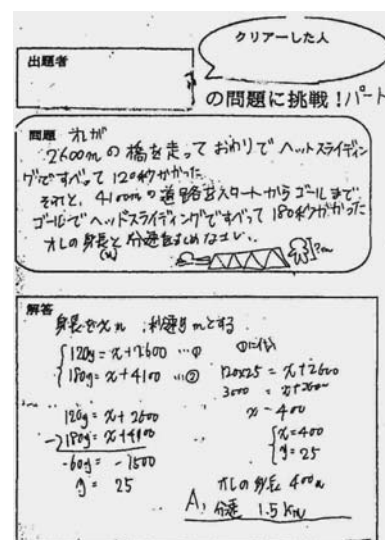 クリアーした人
出題者
の問題に挑戦！パート
問題 オレが
2600mの橋を走っておわりでヘットスライディン
グですべって120秒かかった
それと、4100mの道路をスタートからゴールまで
ゴールでヘッドスライディングですべって180秒かかった
オレの身長と分速をもとめなさい。
(m)
?m
解答
身長をxm 秒速ymとする
①に代入
{120y=x+2600 …①
{180y=x+4100 …②
120×25=x+2600
3000=x+2600
x=400
120y=x+2600
-)180y=x+4100
-60y=-1500
y=25
{x=400
{y=25
オレの身長 400m
A, 分速 1.5km